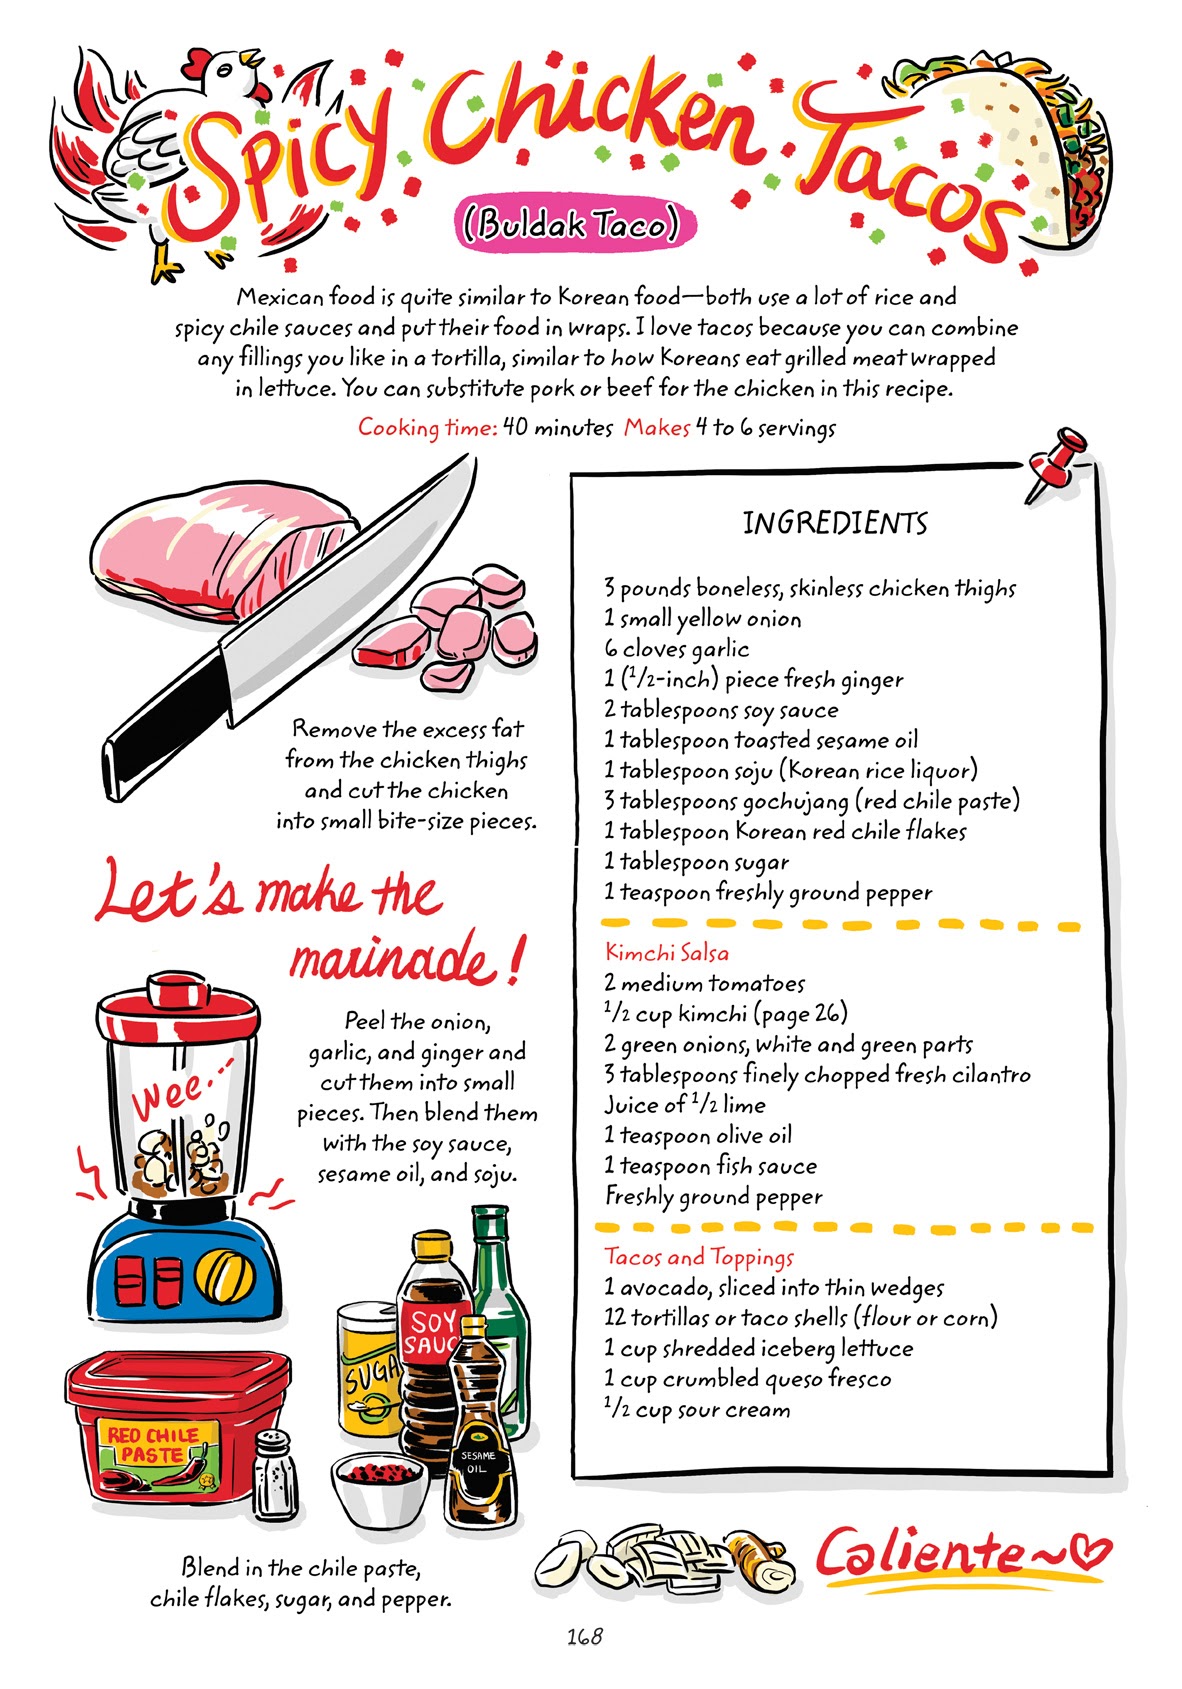 Spicy Chicken Tacos
(Buldak Taco)
Mexican food is quite similar to Korean food—both use a lot of rice and
spicy chile sauces and put their food in wraps. I love tacos because you can combine
any fillings you like in a tortilla, similar to how Koreans eat grilled meat wrapped
in lettuce. You can substitute pork or beef for the chicken in this recipe.
Cooking time: 40 minutes Makes 4 to 6 servings
Remove the excess fat
from the chicken thighs
and cut the chicken
into small bite-size pieces.
Let's make the
marinade!
Peel the onion,
garlic, and ginger and
cut them into small
pieces. Then blend them
with the soy sauce,
sesame oil, and soju.
Wee...
SOY
SAUC
SUGA
SESAME
OIL
RED CHILE
PASTE
Blend in the chile paste,
chile flakes, sugar, and pepper.
INGREDIENTS
3 pounds boneless, skinless chicken thighs
1 small yellow onion
6 cloves garlic
1 (1/2-inch) piece fresh ginger
2 tablespoons soy sauce
1 tablespoon toasted sesame oil
1 tablespoon soju (Korean rice liquor)
3 tablespoons gochujang (red chile paste)
1 tablespoon Korean red chile flakes
1 tablespoon sugar
1 teaspoon freshly ground pepper
Kimchi Salsa
2 medium tomatoes
1/2 cup kimchi (page 26)
2 green onions, white and green parts
3 tablespoons finely chopped fresh cilantro
Juice of 1/2 lime
1 teaspoon olive oil
1 teaspoon fish sauce
Freshly ground pepper
Tacos and Toppings
1 avocado, sliced into thin wedges
12 tortillas or taco shells (flour or corn)
1 cup shredded iceberg lettuce
1 cup crumbled queso fresco
1/2 cup sour cream
Caliente~♡
168